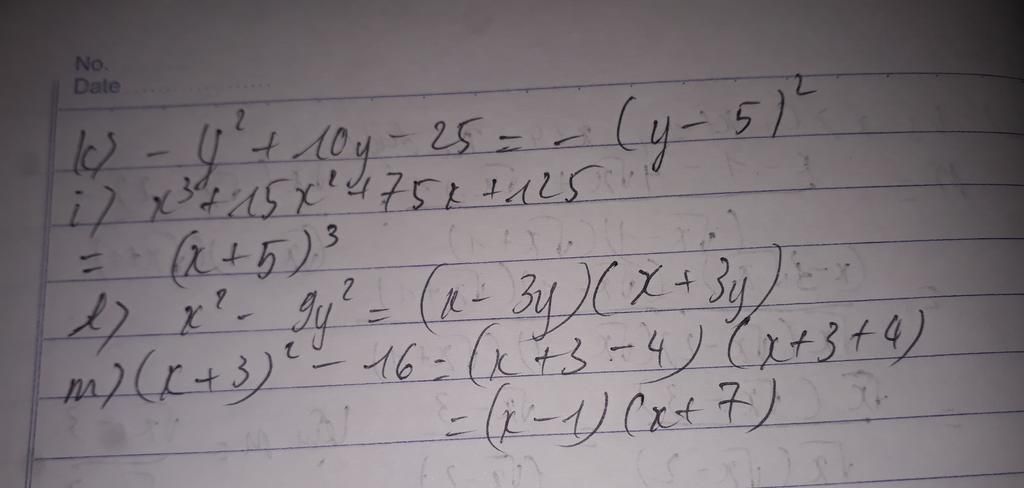 No.
Date
k) - y² + 10y - 25 = - (y - 5)²
i) x³ + 15x² + 75x + 125
= (x + 5)³
l) x² - 9y² = (x - 3y)(x + 3y)
m) (x + 3)² - 16 = (x + 3 - 4) (x + 3 + 4)
= (x - 1) (x + 7)